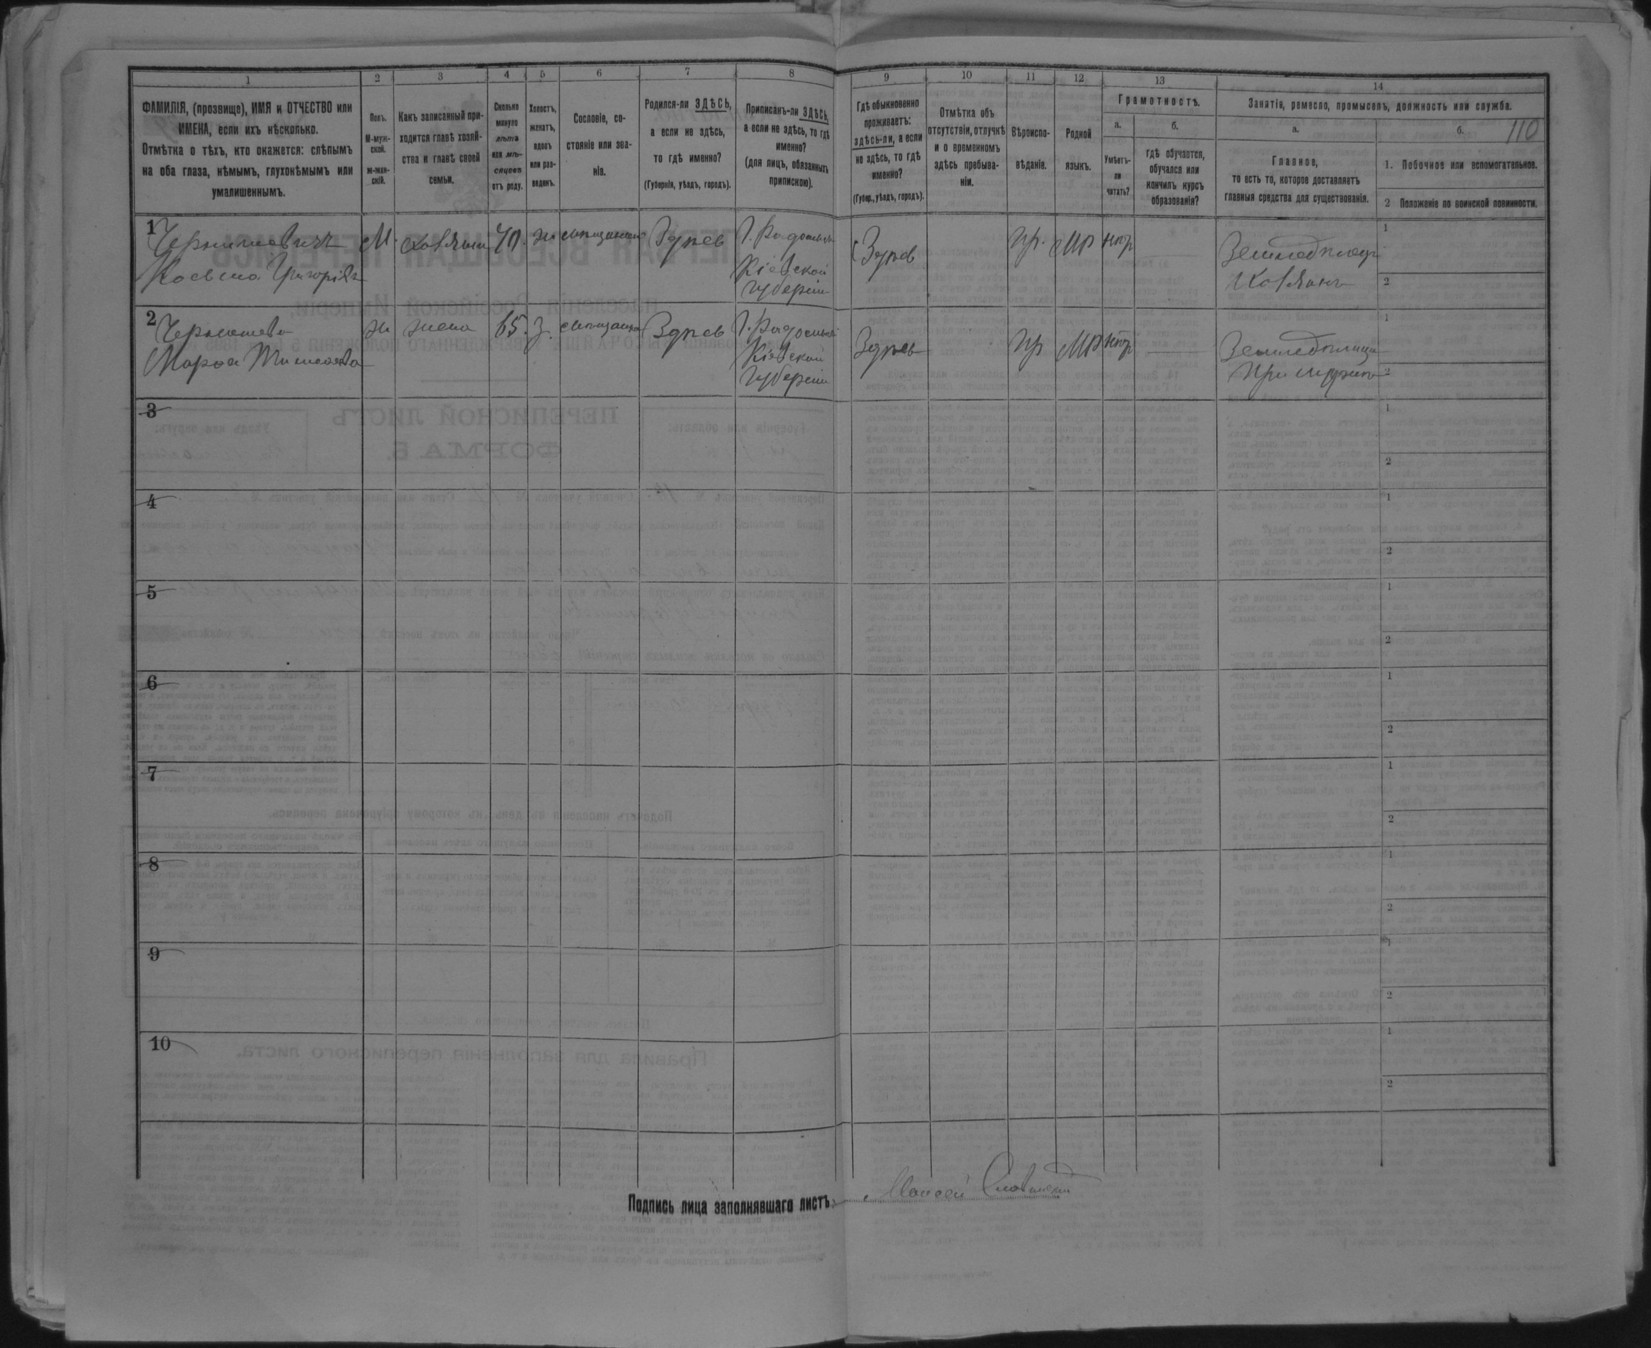 1 2 3 4 5 6 7 8 9 10 11 12 13 14
ФАМИЛІЯ, (прозвище), ИМЯ и ОТЧЕСТВО или
ИМЕНА, если ихъ нѣсколько.
Отмѣтка о тѣхъ, кто окажется: слѣпымъ
на оба глаза, нѣмымъ, глухонѣмымъ или
умалишеннымъ.
Полъ.
М-муж-
ской.
ж-жен-
скій.
Какъ записанный при-
ходится главѣ хозяй-
ства и главѣ своей
семьи.
Сколько
минуло
лѣтъ
или мѣ-
сяцевъ
отъ роду.
Холостъ,
женатъ,
вдовъ
или раз-
веденъ.
Сословіе, со-
стояніе или зва-
ніе.
Родился-ли ЗДѢСЬ,
а если не здѣсь,
то гдѣ именно?
(Губернія, уѣздъ, городъ).
Приписанъ-ли ЗДѢСЬ,
а если не здѣсь, то гдѣ
именно?
(для лицъ, обязанныхъ
припискою).
Гдѣ обыкновенно
проживаетъ:
здѣсь-ли, а если
не здѣсь, то гдѣ
именно?
(Губер., уѣздъ, городъ).
Отмѣтка объ
отсутствіи, отлучкѣ
и о временномъ
здѣсь пребыва-
ніи.
Вѣроиспо-
вѣданіе.
Родной
языкъ.
Грамотность.
а.
Умѣетъ-
ли
читать?
б.
гдѣ обучается,
обучался или
кончилъ курсъ
образованія?
Занятія, ремесло, промыселъ, должность или служба.
а.
Главное,
то есть то, которое доставляетъ
главныя средства для существованія.
б.
110
1. Побочное или вспомогательное.
2 Положеніе по воинской повинности.
1
М. хозяинъ 70. ж
Здѣсь Г. Радомысль
Здѣсь пр. мр нѣтъ
Козьма Григорьевъ
Кіевской
губерніи
Хозяинъ
1
2
2
ж жена 65. з.
Здѣсь Г. Радомысль
Здѣсь пр мр нѣтъ
Кіевской
губерніи
при мужѣ
1
2
3
1
2
4
1
2
5
1
2
6
1
2
7
1
2
8
1
2
9
1
2
10
1
2
Подпись лица заполнявшаго листъ Моисей